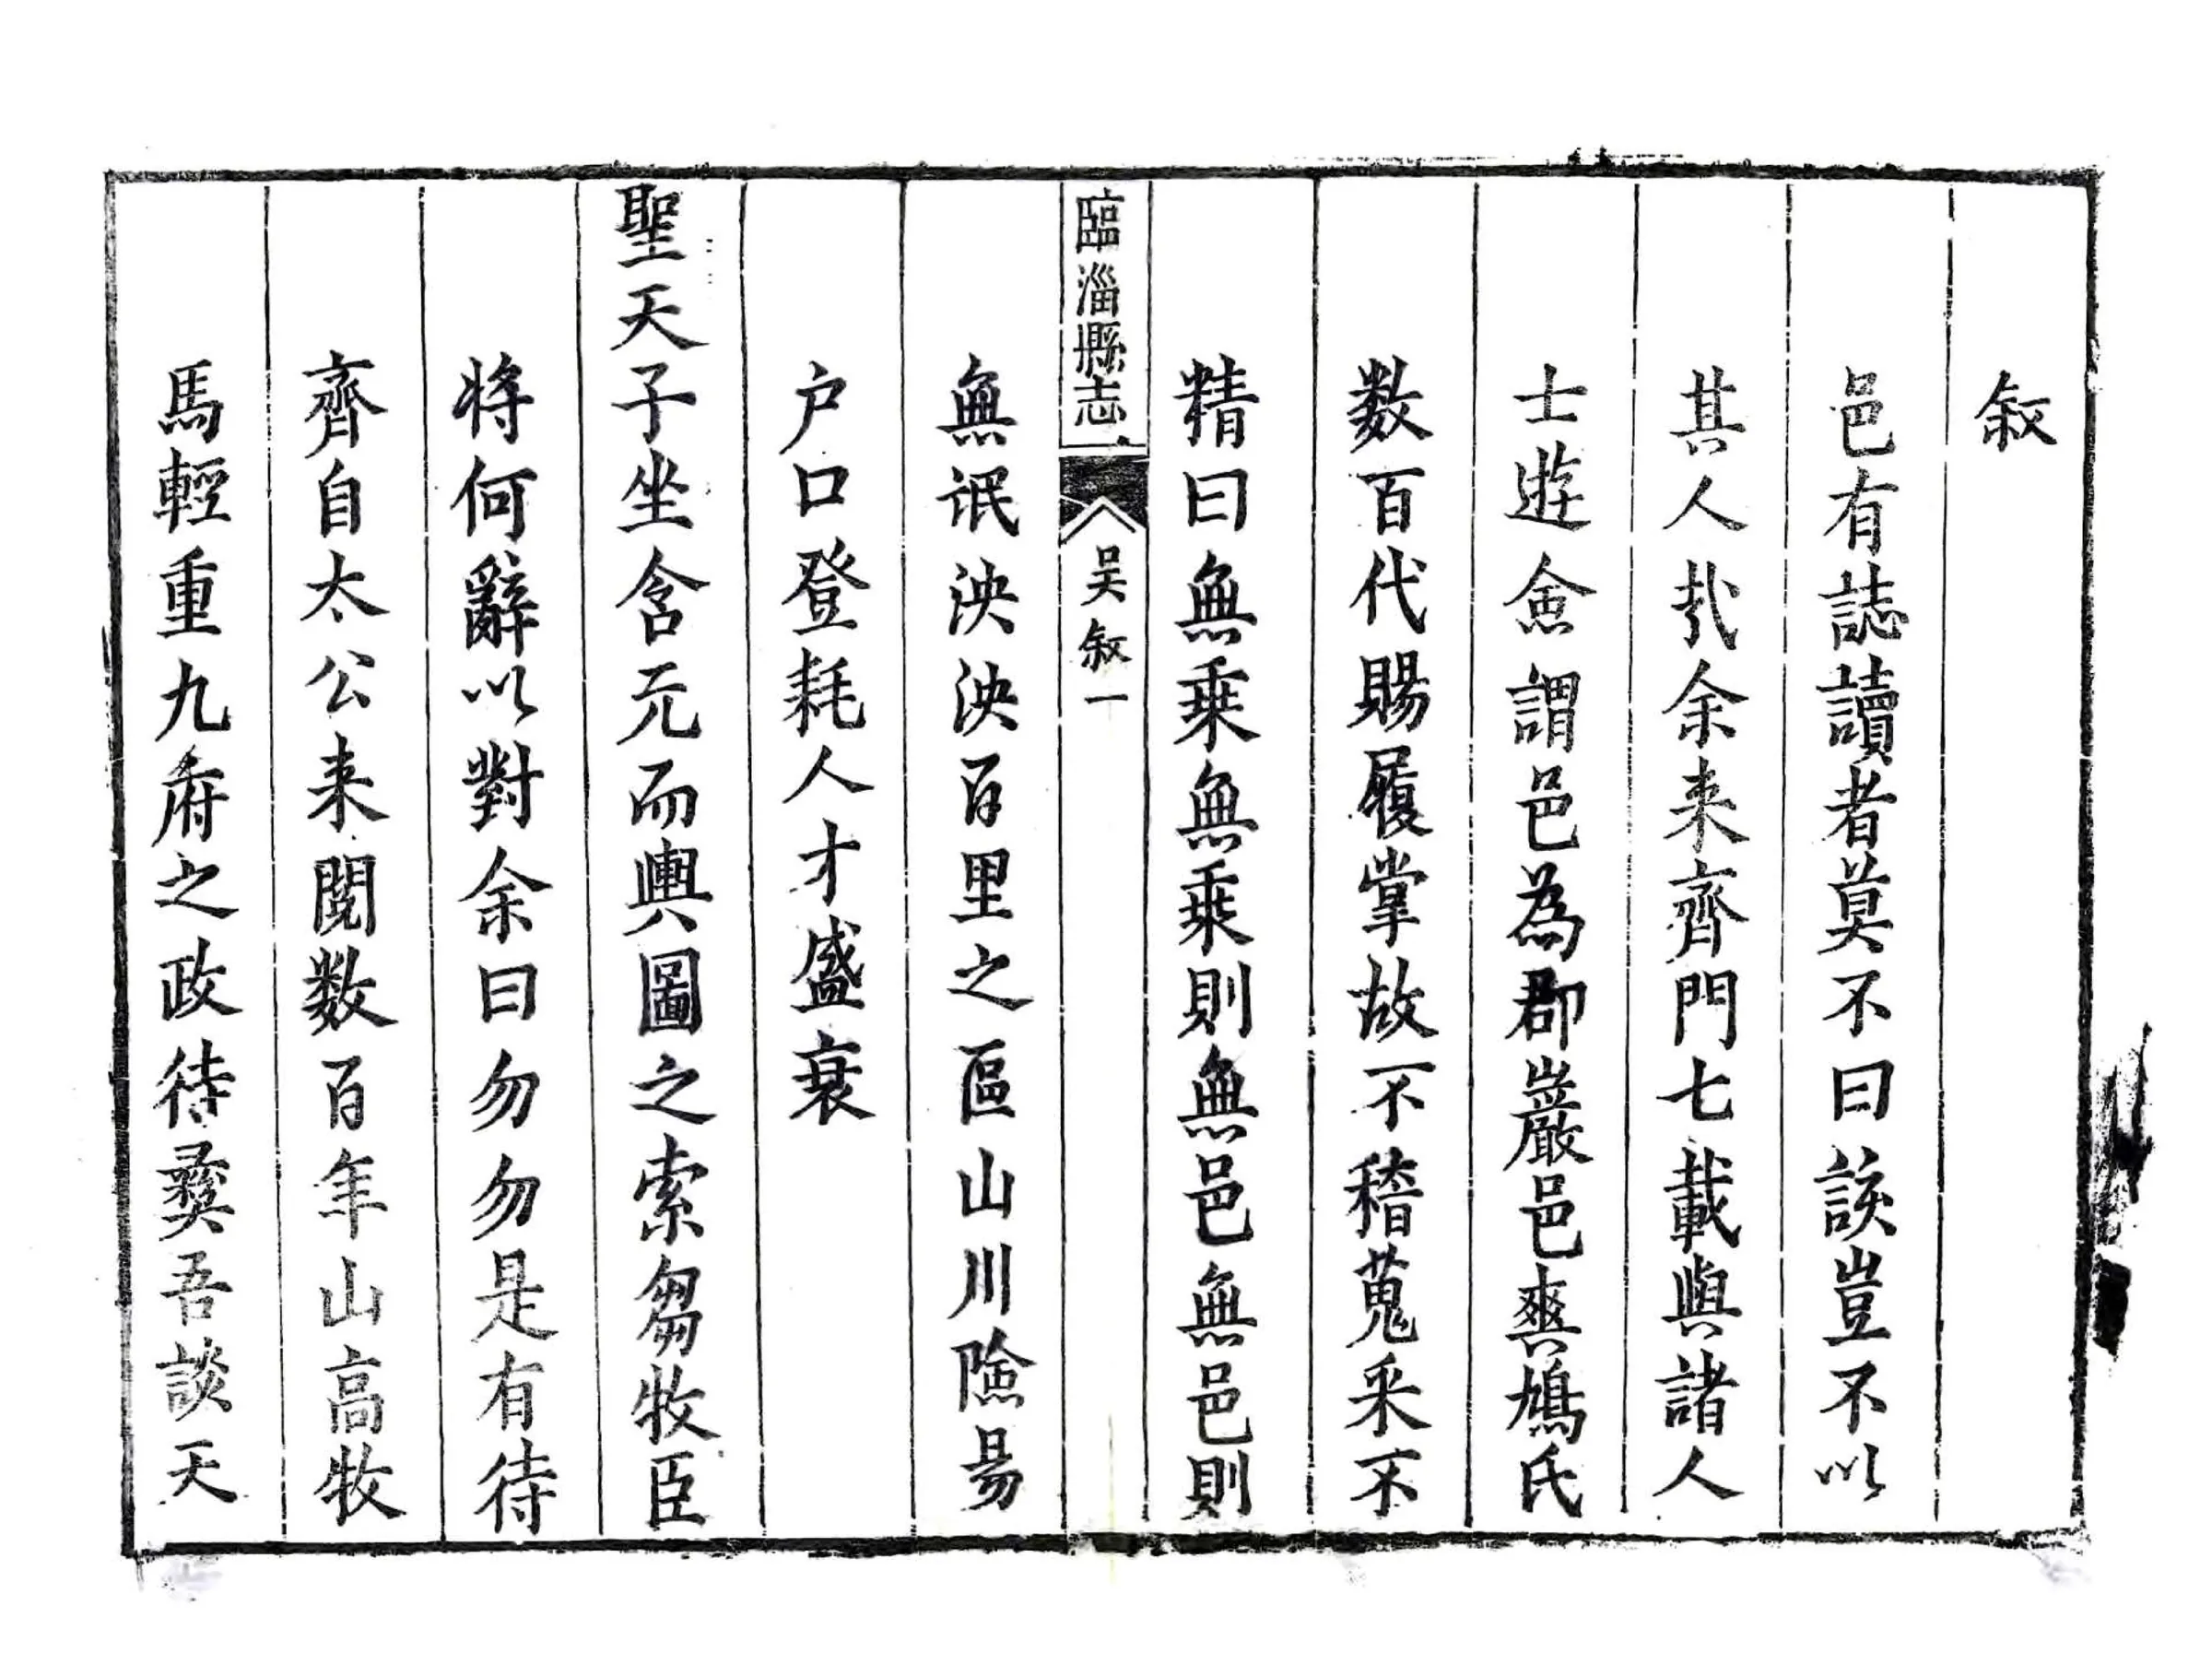 叙
邑有誌讀者莫不曰該豈不以
其人㢤余来齊門七載與諸人
士遊僉謂邑為郡巖邑爽鳩氏
数百代賜履掌故不稽蒐采不
精曰無乘無乘則無邑無邑則
臨淄縣志
吴叙一
無氓泱泱百里之區山川險易
户口登耗人才盛衰
聖天子坐含元而輿圖之索芻牧臣
将何辭以對余曰勿勿是有待
齊自太公来閱数百年山高牧
馬輕重九府之政待彛吾談天